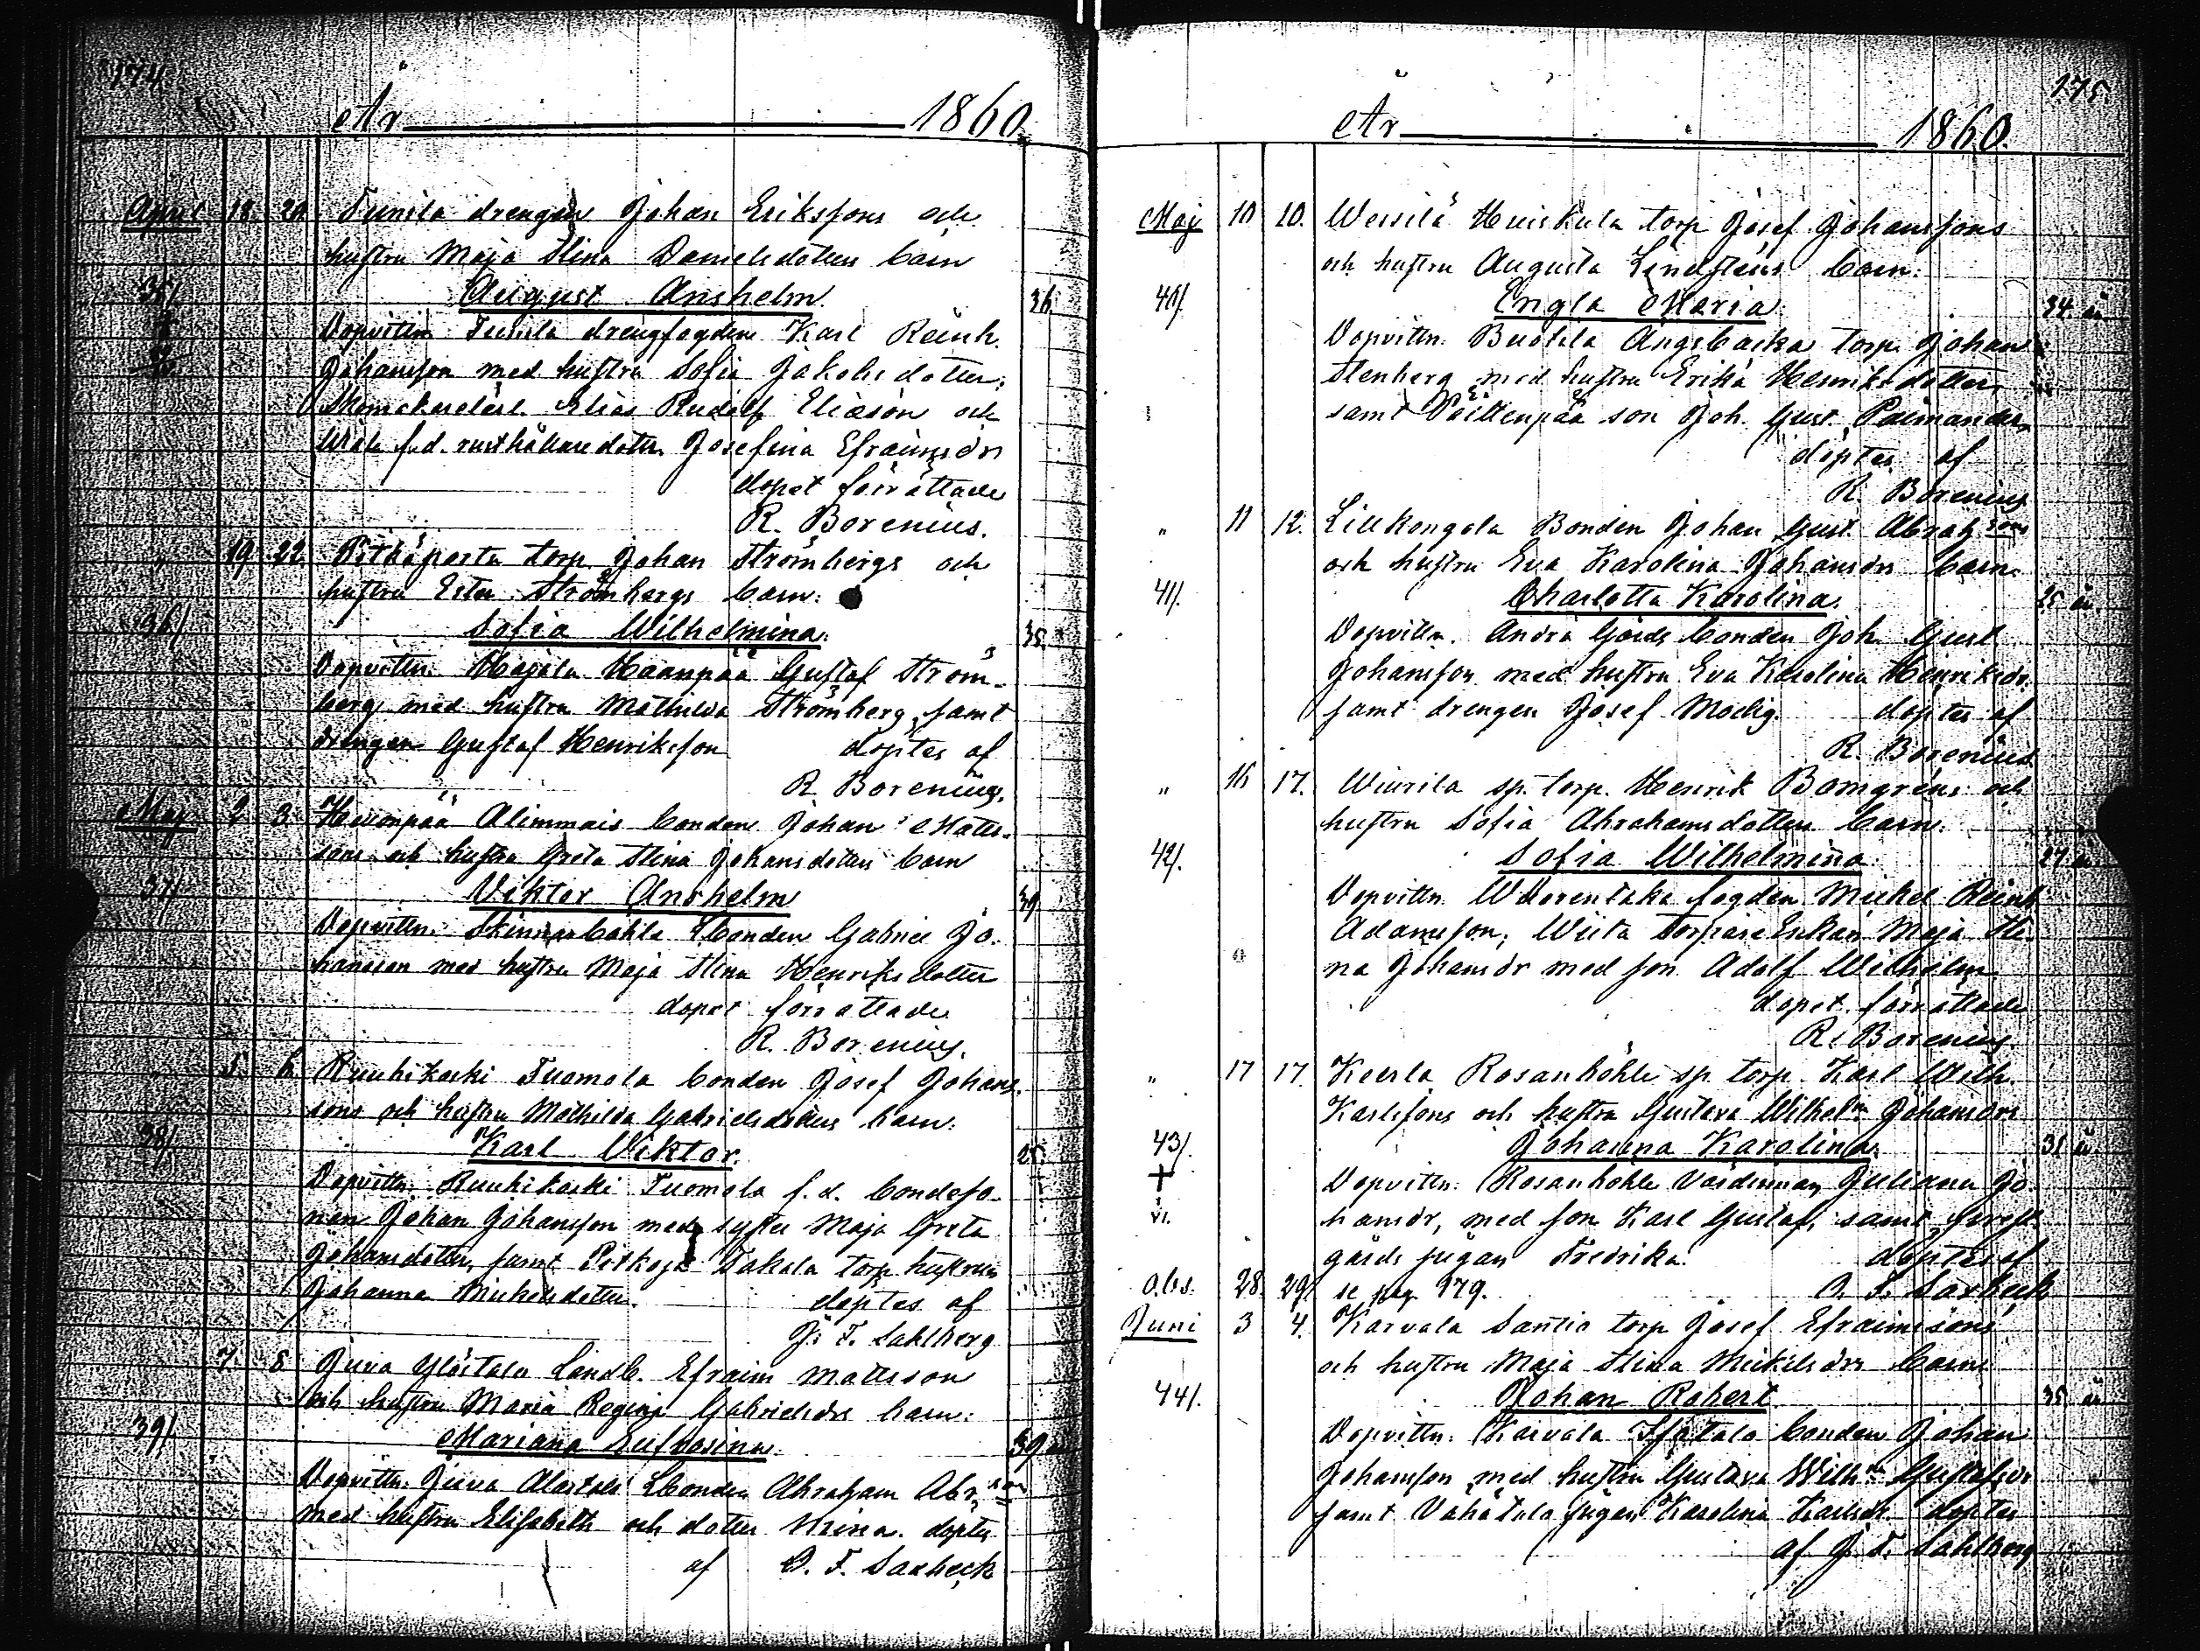 174.
År 1860.
April 18. 20. drengen Johan Erikssons och
hustru Maja Stina Danielsdotters barn
35/. August Anshelm. 36.
Dopvittn. drengfogden Karl Reinh.
Johansson med hustru Sofia Jakobsdotter;
Elias Rudolf Eliason och
f.d. rusthållaredottr. Josefina Efraimsdr
dopet förrättade
R. Borenius.
" 19. 22. torp. Johan Strömbergs och
hustru Ester Strömbergs barn:
36/. Sofia Wilhelmina. 35.
Dopvittn: Haanpää Gustaf Ström-
berg med hustru Mathilda Strömberg samt
drengen Gustaf Henriksson döptes af
R. Borenius.
Maj 2. 3. bonden Johan Matts-
sons och hustru Greta Stina Johansdotters barn
37/. Viktor Anshelm 39.
Dopvittn: bonden Gabriel Jo-
hansson med hustru Maja Stina Henriksdotter
dopet förrättade
R. Borenius.
5. 6. Ruuhikoski Tuomola bonden Josef Johans-
sons och hustru Mathilda Gabrielsdotters barn.
38/. Karl Wiktor.
Dopvittn: Ruuhikoski Tuomola f.d. bondeso-
nen Johan Johansson med syster Maja Greta
Johansdotter, samt Takala torp. hustrun
Johanna Michelsdotter. döptes af
J. F. Sahlberg
7. 8. Juva Ylöstalo Landb. Efraim Mattsson
och hustru Maria Regina Gabrielsdrs barn:
39/. Mariana Eufrosina. 39
Dopvittn. Juva Alastalo bonden Abraham Abr.son
med hustru Elisabeth och dotter Stina. döptes
af O. F. Saxbeck
175.
År 1860.
Maj 10 10. torp. Josef Johanssons
och hustru Augusta barn:
40/. Engla Maria. 34 år
Dopvittn. torp. Johan
Stenberg med hustru Erika Henriksdotter
samt son Joh. Gust. Palmander,
döptes af
R. Borenius
" 11 12. Lillkongola Bonden Johan Gust. Abrah.sons
och hustru Eva Karolina Johansdrs barn.
41/. Charlotta Karolina. 25 år
Dopvittn. bonden Joh. Gust.
Johansson med hustru Eva Karolina Henriksdr.
samt drengen Josef Modig. döptes af
R. Borenius
" 16 17. Wiurila sp. torp. Henrik Bomgréns och
hustru Sofia Abrahamsdotters barn.
42/. Sofia Wilhelmina 27 år
Dopvittn. fogden Michel Reinh.
Adamsson, Wiita Maja Sti-
na Johansdr med son Adolf Wilhelm
dopet förrättade
R. Borenius.
" 17 17 Rosankohle sp. torp. Karl Wilh.
Karlssons och hustru Gustava Wilhelm. Johansdrs
43/. Johanna Karolina. 31 år
† Dopvittn: Rosankohle Juliana Jo-
hansdr, med son Karl Gustaf, samt
gårds pigan Fredrika. döptes af
obs. 28. 29. se pag 179. O. F. Saxbeck
Juni 3 4. Karvala torp. Josef Efraimssons
och hustru Maja Stina Mickelsdrs barn
44/. Johan Robert 35 år
Dopvittn. Karvala bonden Johan
Johansson med hustru Gustava Wilh.na Gustafsdr
samt pigan Karolina Karlsdr. döptes
af J. F. Sahlberg